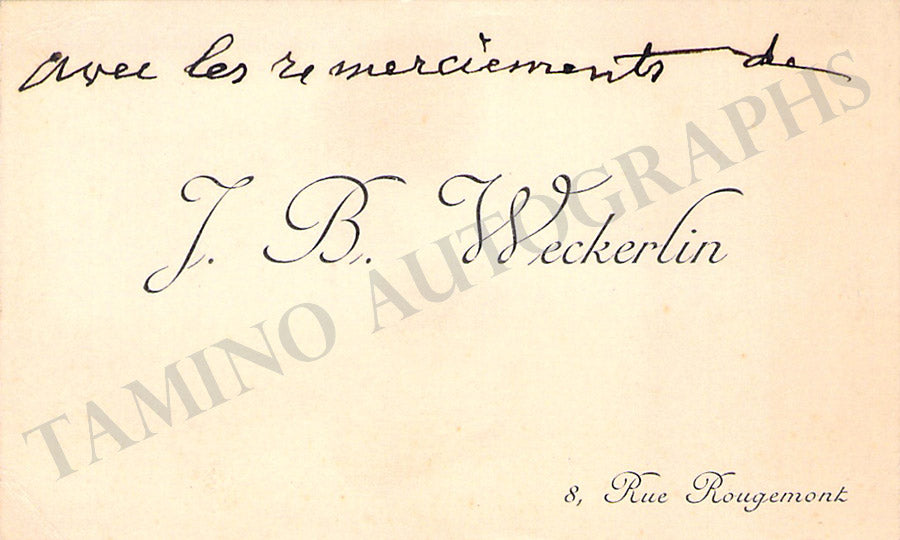 avec les remerciements de
J. B. Weckerlin
TAMINO AUTOGRAPHS
8, Rue Rougemont